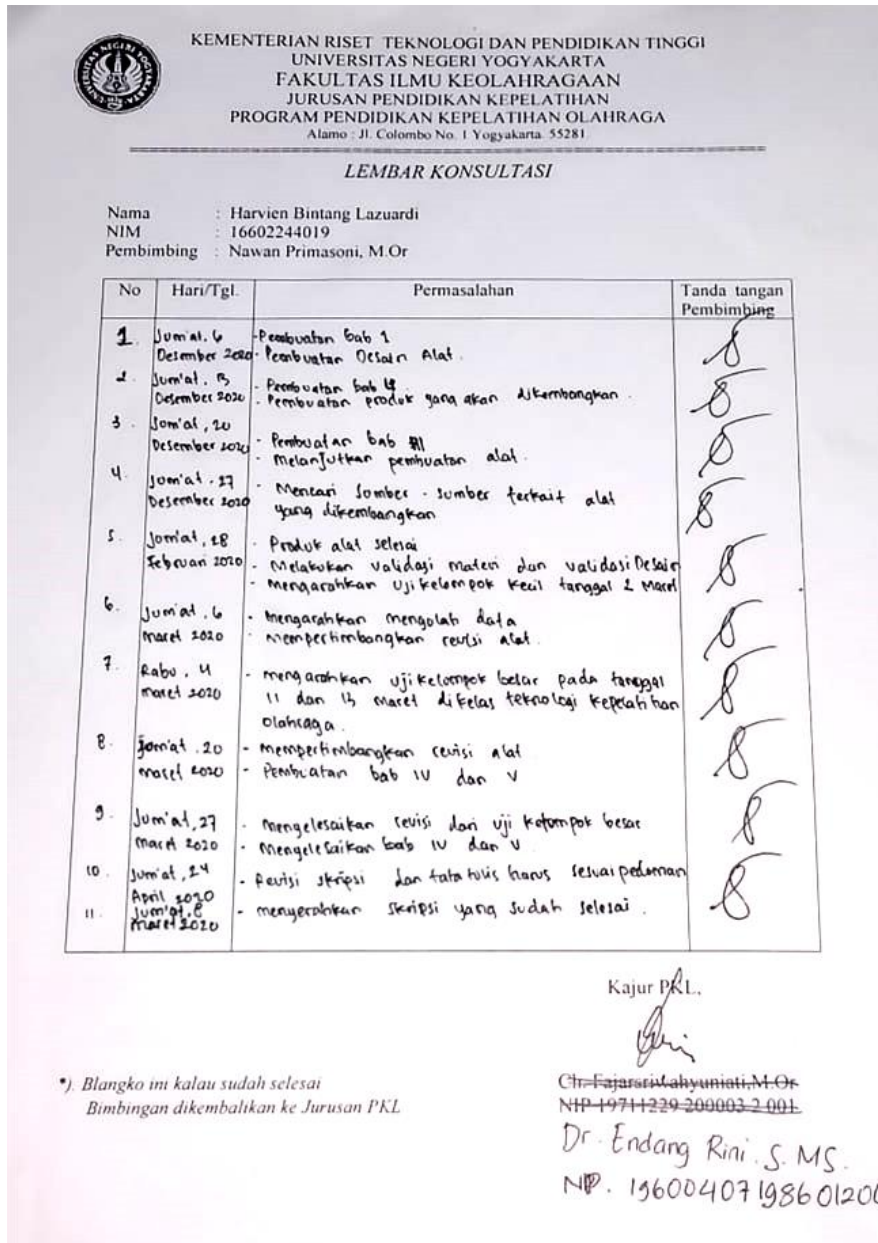 UNIVERSITAS NEGERI YOGYAKARTA
KEMENTERIAN RISET TEKNOLOGI DAN PENDIDIKAN TINGGI
UNIVERSITAS NEGERI YOGYAKARTA
FAKULTAS ILMU KEOLAHRAGAAN
JURUSAN PENDIDIKAN KEPELATIHAN
PROGRAM PENDIDIKAN KEPELATIHAN OLAHRAGA
Alamo : Jl. Colombo No. 1 Yogyakarta 55281
LEMBAR KONSULTASI
Nama : Harvien Bintang Lazuardi
NIM : 16602244019
Pembimbing : Nawan Primasoni, M.Or
No Hari/Tgl. Permasalahan Tanda tangan
Pembimbing
1. Jum'at, 6 - Pembuatan bab 1
Desember 2020 - Pembuatan Desain Alat.
2. Jum'at, 13 - Pembuatan bab
Desember 2020 - Pembuatan produk yang akan dikembangkan.
3. Jum'at, 20
Desember 2020 - Pembuatan bab
- Melanjutkan pembuatan alat.
4. Jum'at, 27 - Mencari Sumber - sumber terkait alat
Desember 2020 yang dikembangkan
5. Jum'at, 28 - Produk alat selesai
Februari 2020 - Melakukan validasi materi dan validasi Desain
- Mengarahkan Uji kelompok kecil tanggal 2 Maret
6. Jum'at, 6 - Mengarahkan mengolah data
Maret 2020 - Mempertimbangkan revisi alat.
7. Rabu, 11 - mengarahkan uji kelompok besar pada tanggal
maret 2020 11 dan 13 maret di kelas teknologi kepelatihan
olahraga.
8. Jum'at, 20 - mempertimbangkan revisi alat
maret 2020 - Pembuatan bab IV dan V
9. Jum'at, 27 - Mengelesaikan revisi dari uji kelompok besar
Maret 2020 - Mengelesaikan bab IV dan V
10. Jum'at, 24 - Revisi skripsi dan tata tulis harus sesuai pedoman
April 2020
11. Jum'at, 8 - menyerahkan skripsi yang sudah selesai.
maret 2020
Kajur PKL,
*). Blangko ini kalau sudah selesai
Bimbingan dikembalikan ke Jurusan PKL
Ch. Fajarsriwahyuniati,M.Or
NIP 19711229 200003 2 001
Dr. Endang Rini. S. MS.
NIP. 19600407198601200